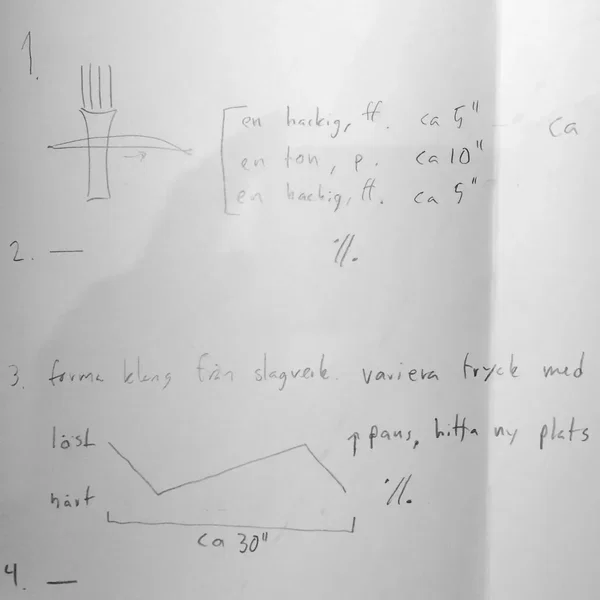 1.
en hackig, ff. ca 5"
ca
en ton, p. ca 10"
en hackig, ff. ca 5"
2. — ٪.
3. forma klang från slagverk. variera tryck med
löst ↑ paus, hitta ny plats
hårt ٪.
ca 30"
4. —